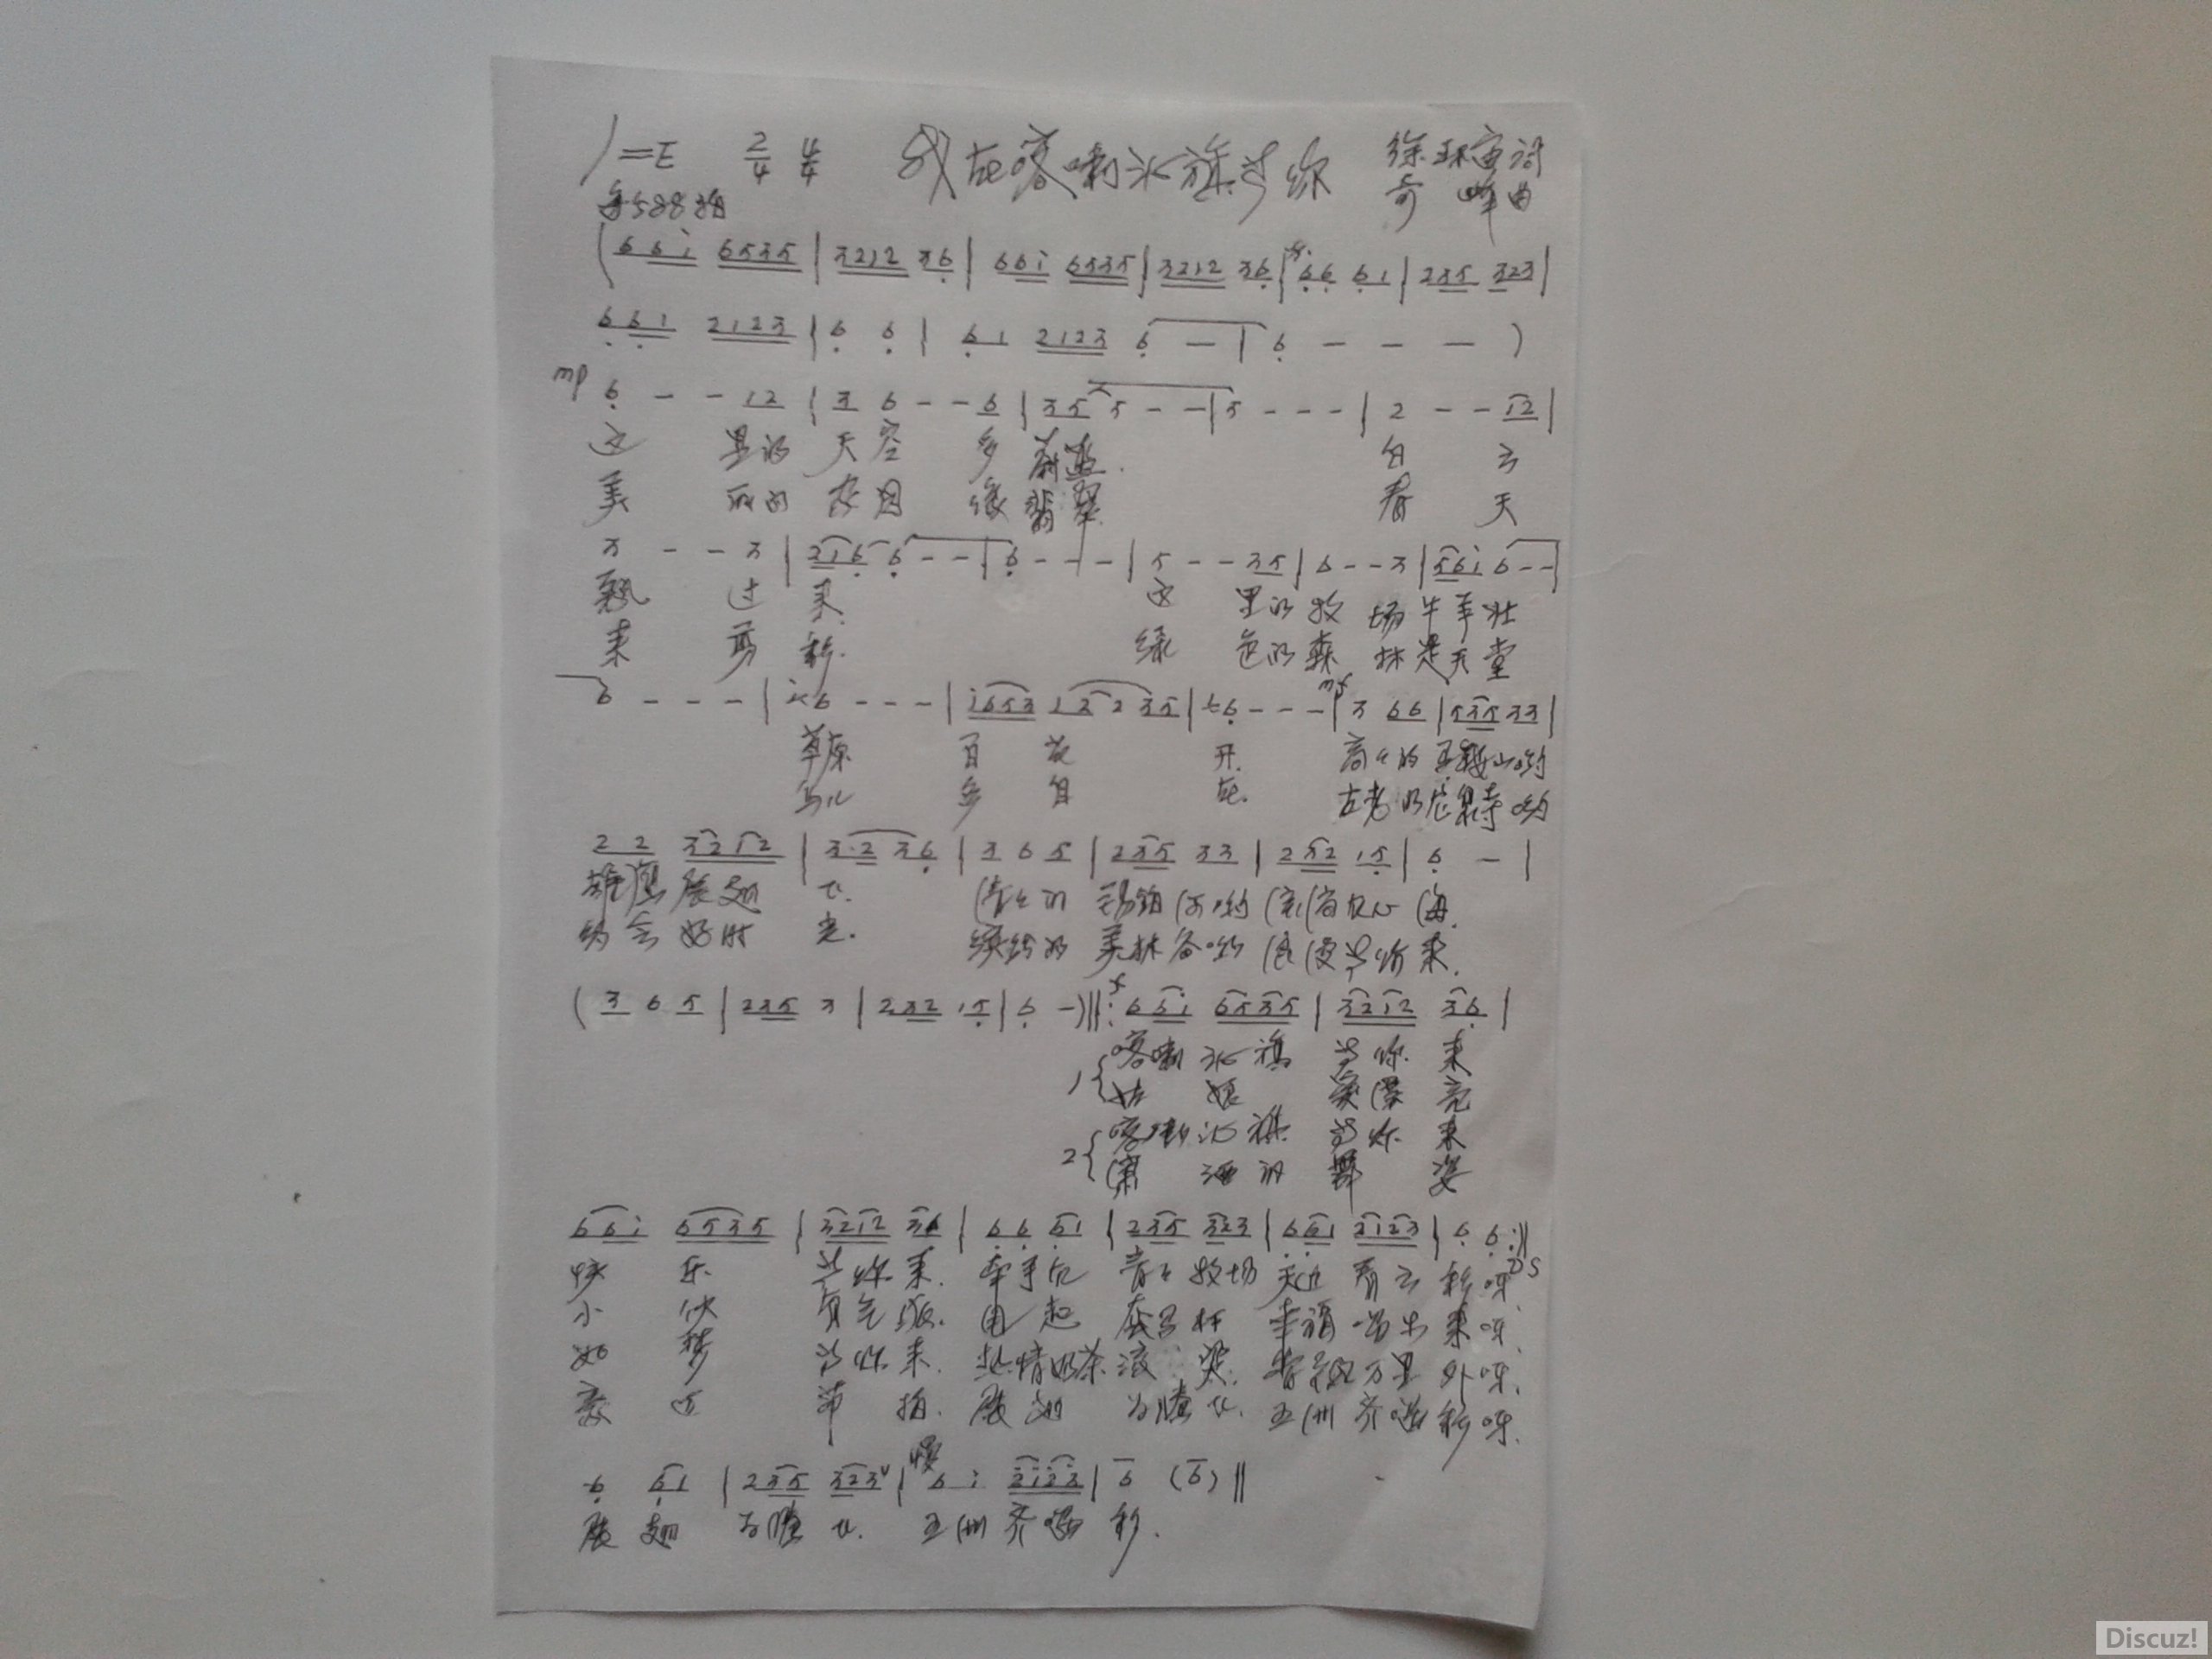 1=E 2/4 4/4 我在喀喇沁旗等你 徐环宙词
每分88拍 奇 峰曲
(6 6 i 6535 | 3212 36 | 66i 6535 | 3212 36 | 66 61 | 235 323 |
661 2123 | 6 6 | 61 2123 6 — | 6 — — — )
mp 6 - - 12 | 3 6 - - 6 | 35 5 - - | 5 - - - | 2 - - 12 |
这 里的 天空 多 蔚蓝. 白 云
美 丽的 花园 像 翡翠 春 天
3 - - 3 | 216 6 - - | 6 - - - | 5 - - 35 | 6 - - 3 | 56i 6 - - |
飘 过 来. 这 里的牧 场牛羊壮
来 剪 彩. 绿 色的森 林是天堂
6 - - - | i6 - - - | i653 12 2 35 | 6 - - - | mf 3 66 | 535 33 |
草原 百 花 开. 高高的马鞍山哟
马儿 多 自 在. 古老的 哟
22 3212 | 3·2 36 | 3 6 5 | 235 33 | 232 15 | 6 — |
雄鹰展翅 飞. 清清的 锡伯河哟
约会好时 光. 缤纷的 美林谷哟 来.
( 3 6 5 | 235 3 | 232 15 | 6 - ) ‖: f 66i 6535 | 3212 36 |
喀喇沁旗 等你 来
1 姑 娘 最漂 亮
2 喀喇沁旗 等你 来
潇 洒的 舞 姿
66i 6535 | 3212 36 | 66 61 | 235 323 | 661 2123 | 6 6 :‖
快 乐 等你来. 牵手在 青青牧场 天边 看云彩呀. DS
小 伙 有气派. 甩起 套马杆 幸福 出来呀.
如 梦 等你来. 热情奶茶 滚烫. 香飘万里外呀.
豪迈 节拍. 展翅 为腾飞. 五洲齐喝彩呀.
6 61 | 235 323 | 慢 6 i 2123 | 6 (6) ‖
展翅 为腾飞. 五洲齐喝彩.
Discuz!